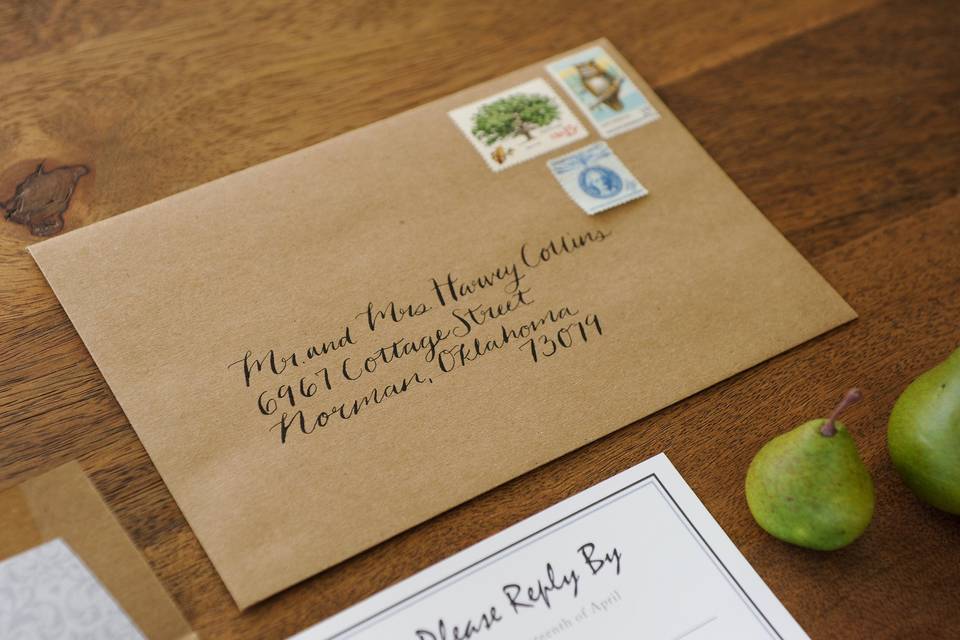 Mr. and Mrs. Harvey Collins
6967 Cottage Street
Norman, Oklahoma
73019
Please Reply By
of April